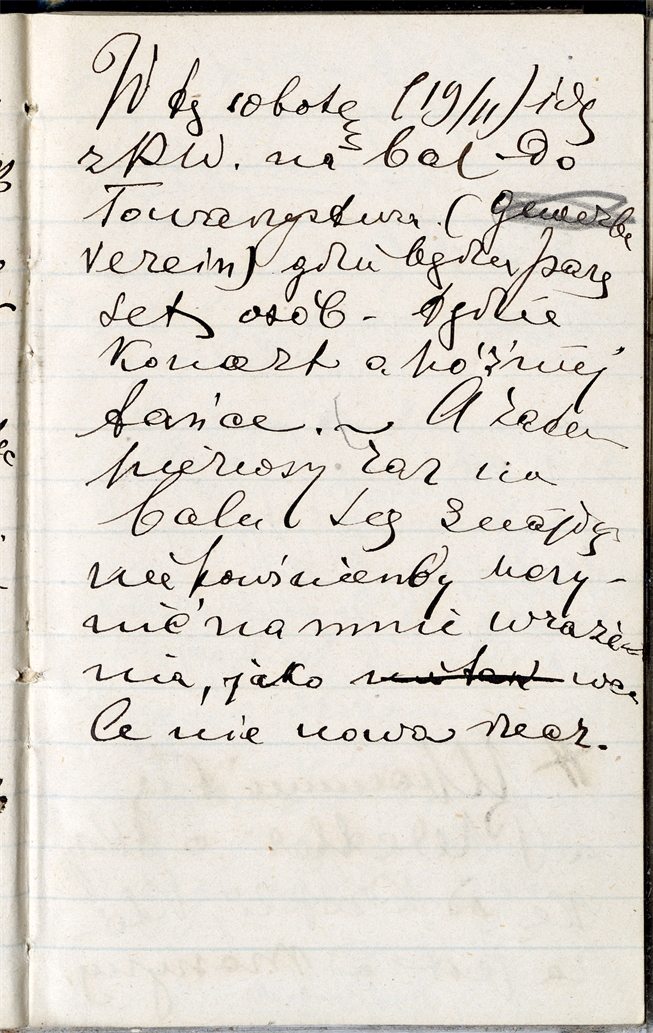 W tę sobotę (19/II) idę
z P.W. na bal do
Towarzystwa (Gewerbe
verein) gdzie będzie parę
set osób – będzie
koncert a później
tańce. – A żaden
pierwszy raz na
balu się znajdę
nie powinienby uczy-
nić na mnie wraże-
nia, jako wca
le nie nowa rzecz.